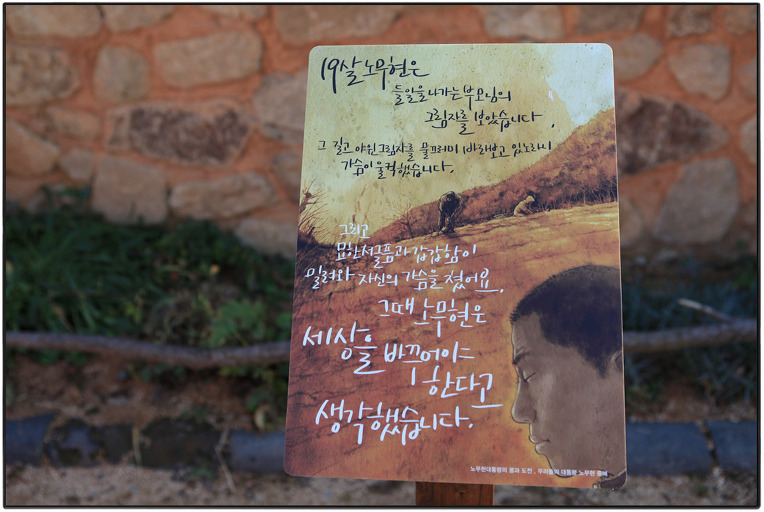 19살 노무현은
들일을 나가는 부모님의
그림자를 보았습니다.
그 길고 야윈 그림자를 물끄러미 바라보고 있노라니
가슴이 울컥했습니다.
그리고
묘한 서글픔과 갑갑함이
밀려와 자신의 가슴을 쳤어요.
그때 노무현은
세상을 바꾸어야
한다고
생각했습니다.
노무현대통령의 꿈과 도전, 우리들의 대통령 노무현 중에